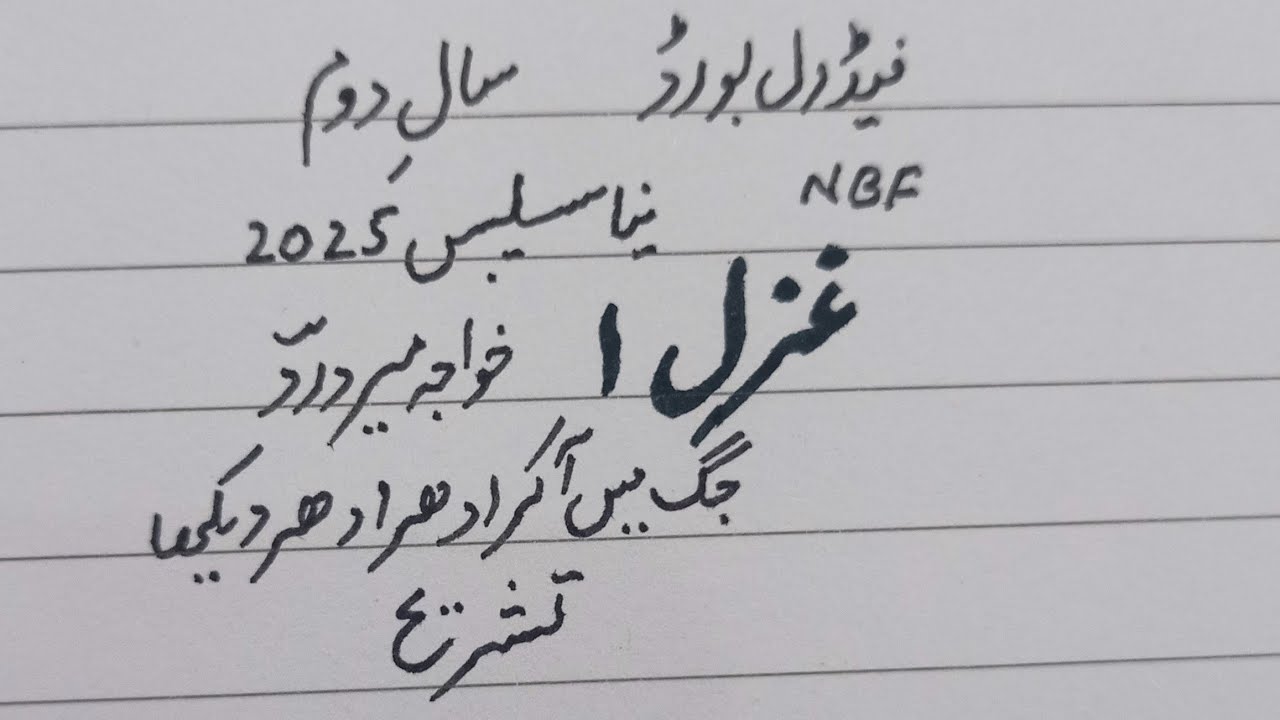 فیڈرل بورڈ سالِ دوم
NBF نیا سلیبس 2025ء
غزل ۱ خواجہ میر دردؔ
جگ میں آکر ادھر ادھر دیکھا
تشریح